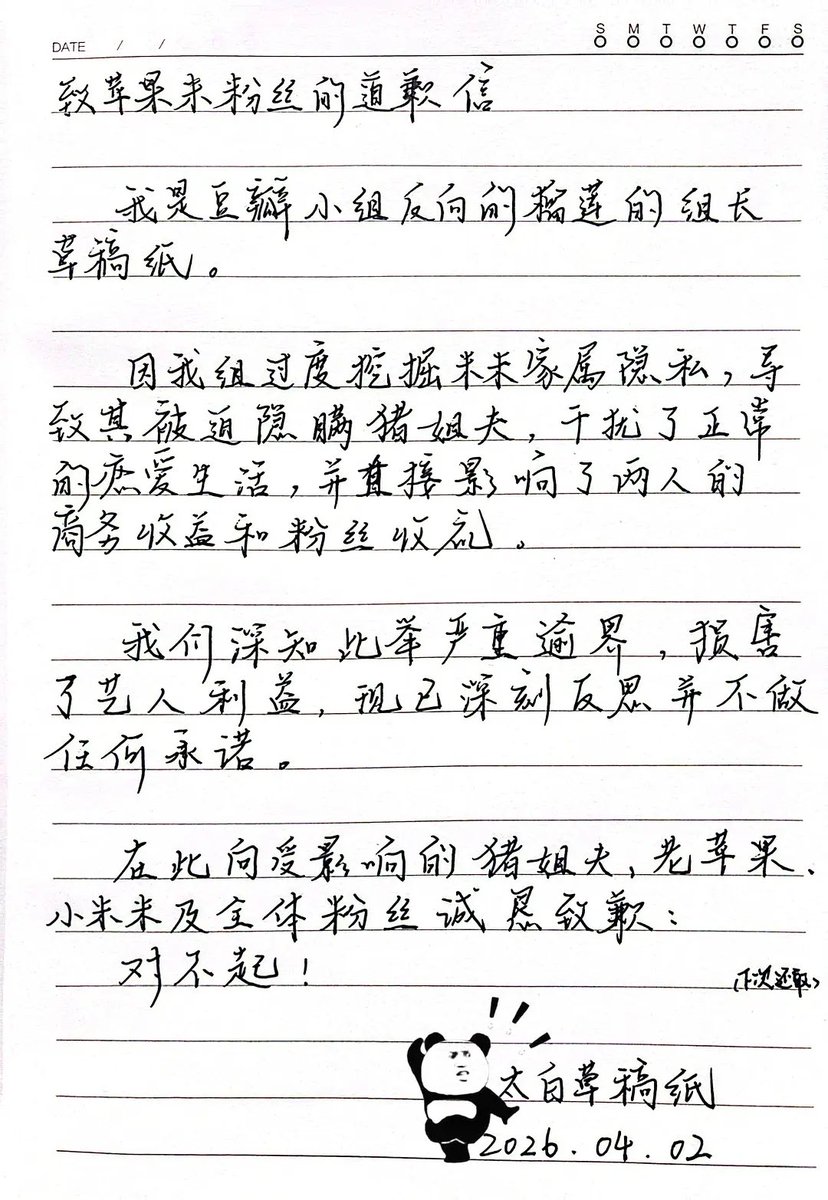 S M T W T F S
DATE / /
致苹果米粉丝的道歉信
我是豆瓣小组反向的榴莲的组长
草稿纸。
因我组过度挖掘米米家属隐私,导
致其被迫隐瞒猪姐夫,干扰了正常
的恋爱生活,并直接影响了两人的
商务收益和粉丝收礼。
我们深知此举严重逾界,损害
了艺人利益,现已深刻反思并不做
任何承诺。
在此向受影响的猪姐夫、老苹果、
小米米及全体粉丝诚恳致歉:
对不起!
(下次还敢)
太白草稿纸
2026.04.02